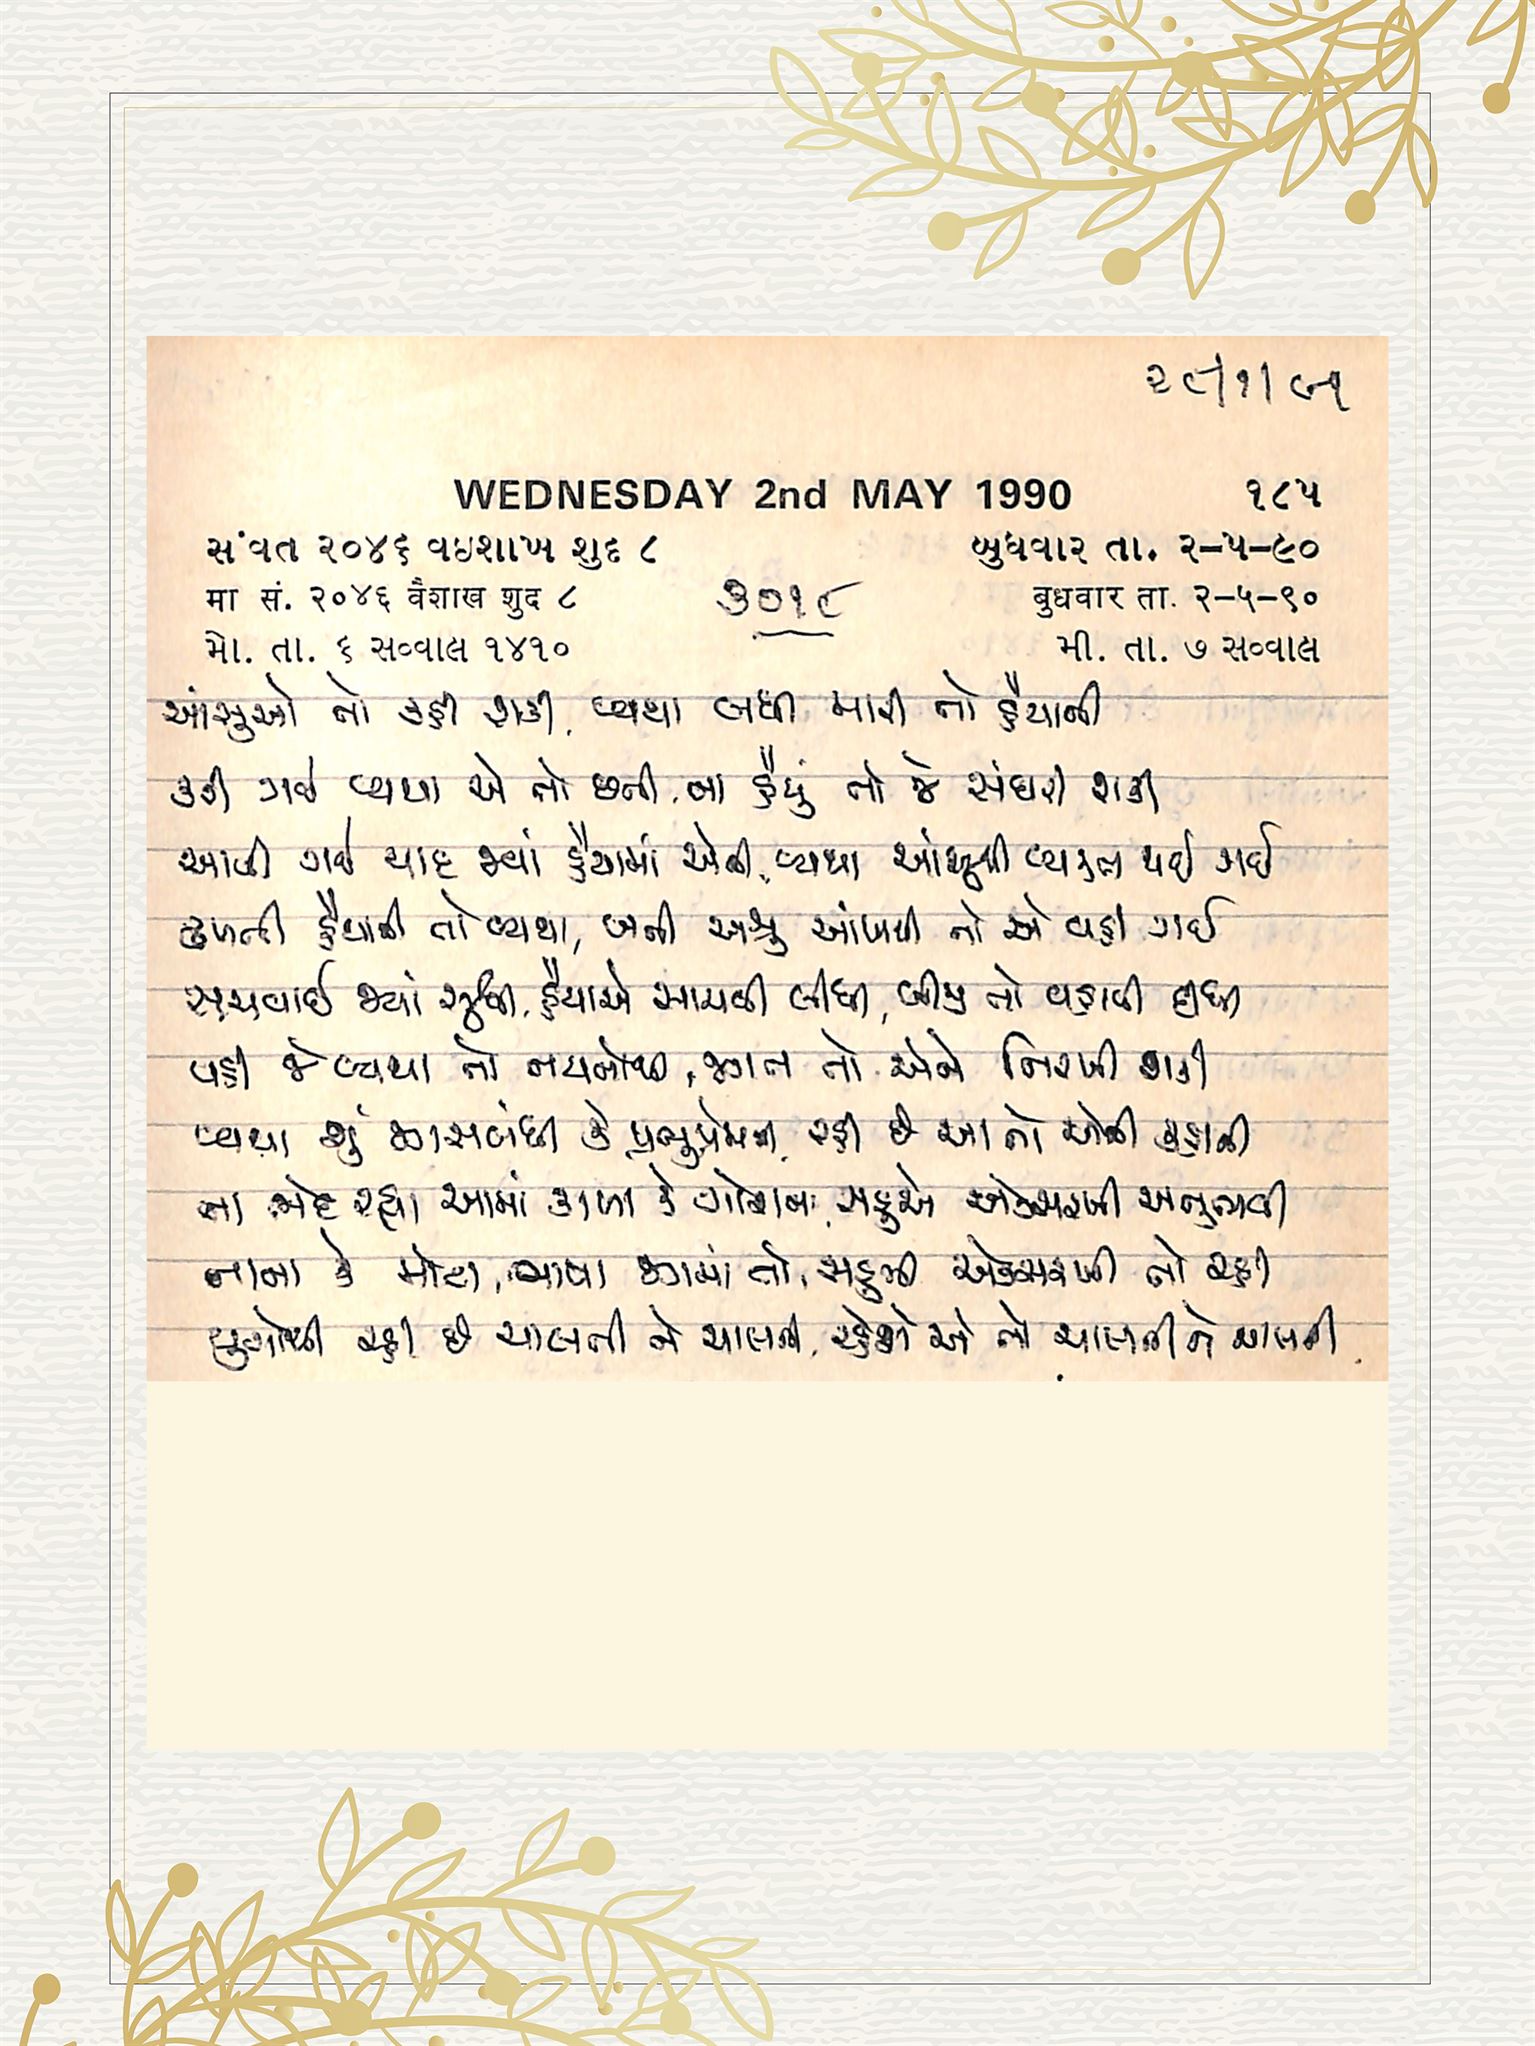 ૨૯/૧/૯૧
WEDNESDAY 2nd MAY 1990 ૧૮૫
સંવત ૨૦૪૬ વઇશાખ શુદ ૮ બુધવાર તા. ૨–૫–૯૦
मा सं. २०४६ वैशाख शुद ८ बुधवार ता. २–५–९०
મો. તા. ૬ સવ્વાલ ૧૪૧૦ મી. તા. ૭ સવ્વાલ
૩૦૧૯
આંસુઓ તો કહી શકી, વ્યથા બધી મારી તો હૈયાની
કહી ગઈ વ્યથા એ તો છની, ના હૈયું તો જે સંઘરી શકી
આવી ગઈ યાદ જ્યાં હૈયામાં એની, વ્યથા આંસુથી વ્યક્ત થઈ ગઈ
હૈયાની તો વ્યથા, બની અશ્રુ આંખથી તો એ વહી ગઈ
સચવાઈ જ્યાં સુધી, હૈયાએ સાચવી લીધી, બીજી તો વહાવી દીધી
વહી જે વ્યથા તો નયનોથી, જગત તો એને નિરખી શકી
વ્યથા શું જગસબંધી કે પ્રભુપ્રેમની, રહી છે આ તો એની કહાની
ના ભેદ રહ્યા આમાં કાળા કે ગોરાના, સહુએ એકસરખી અનુભવી
નાના કે મોટા, ભાષા જગમાં તો, સહુની એકસરખી તો રહી
યુગોથી રહી છે ચાલતી ને ચાલતી, રહેશે એ તો ચાલતી ને ચાલતી